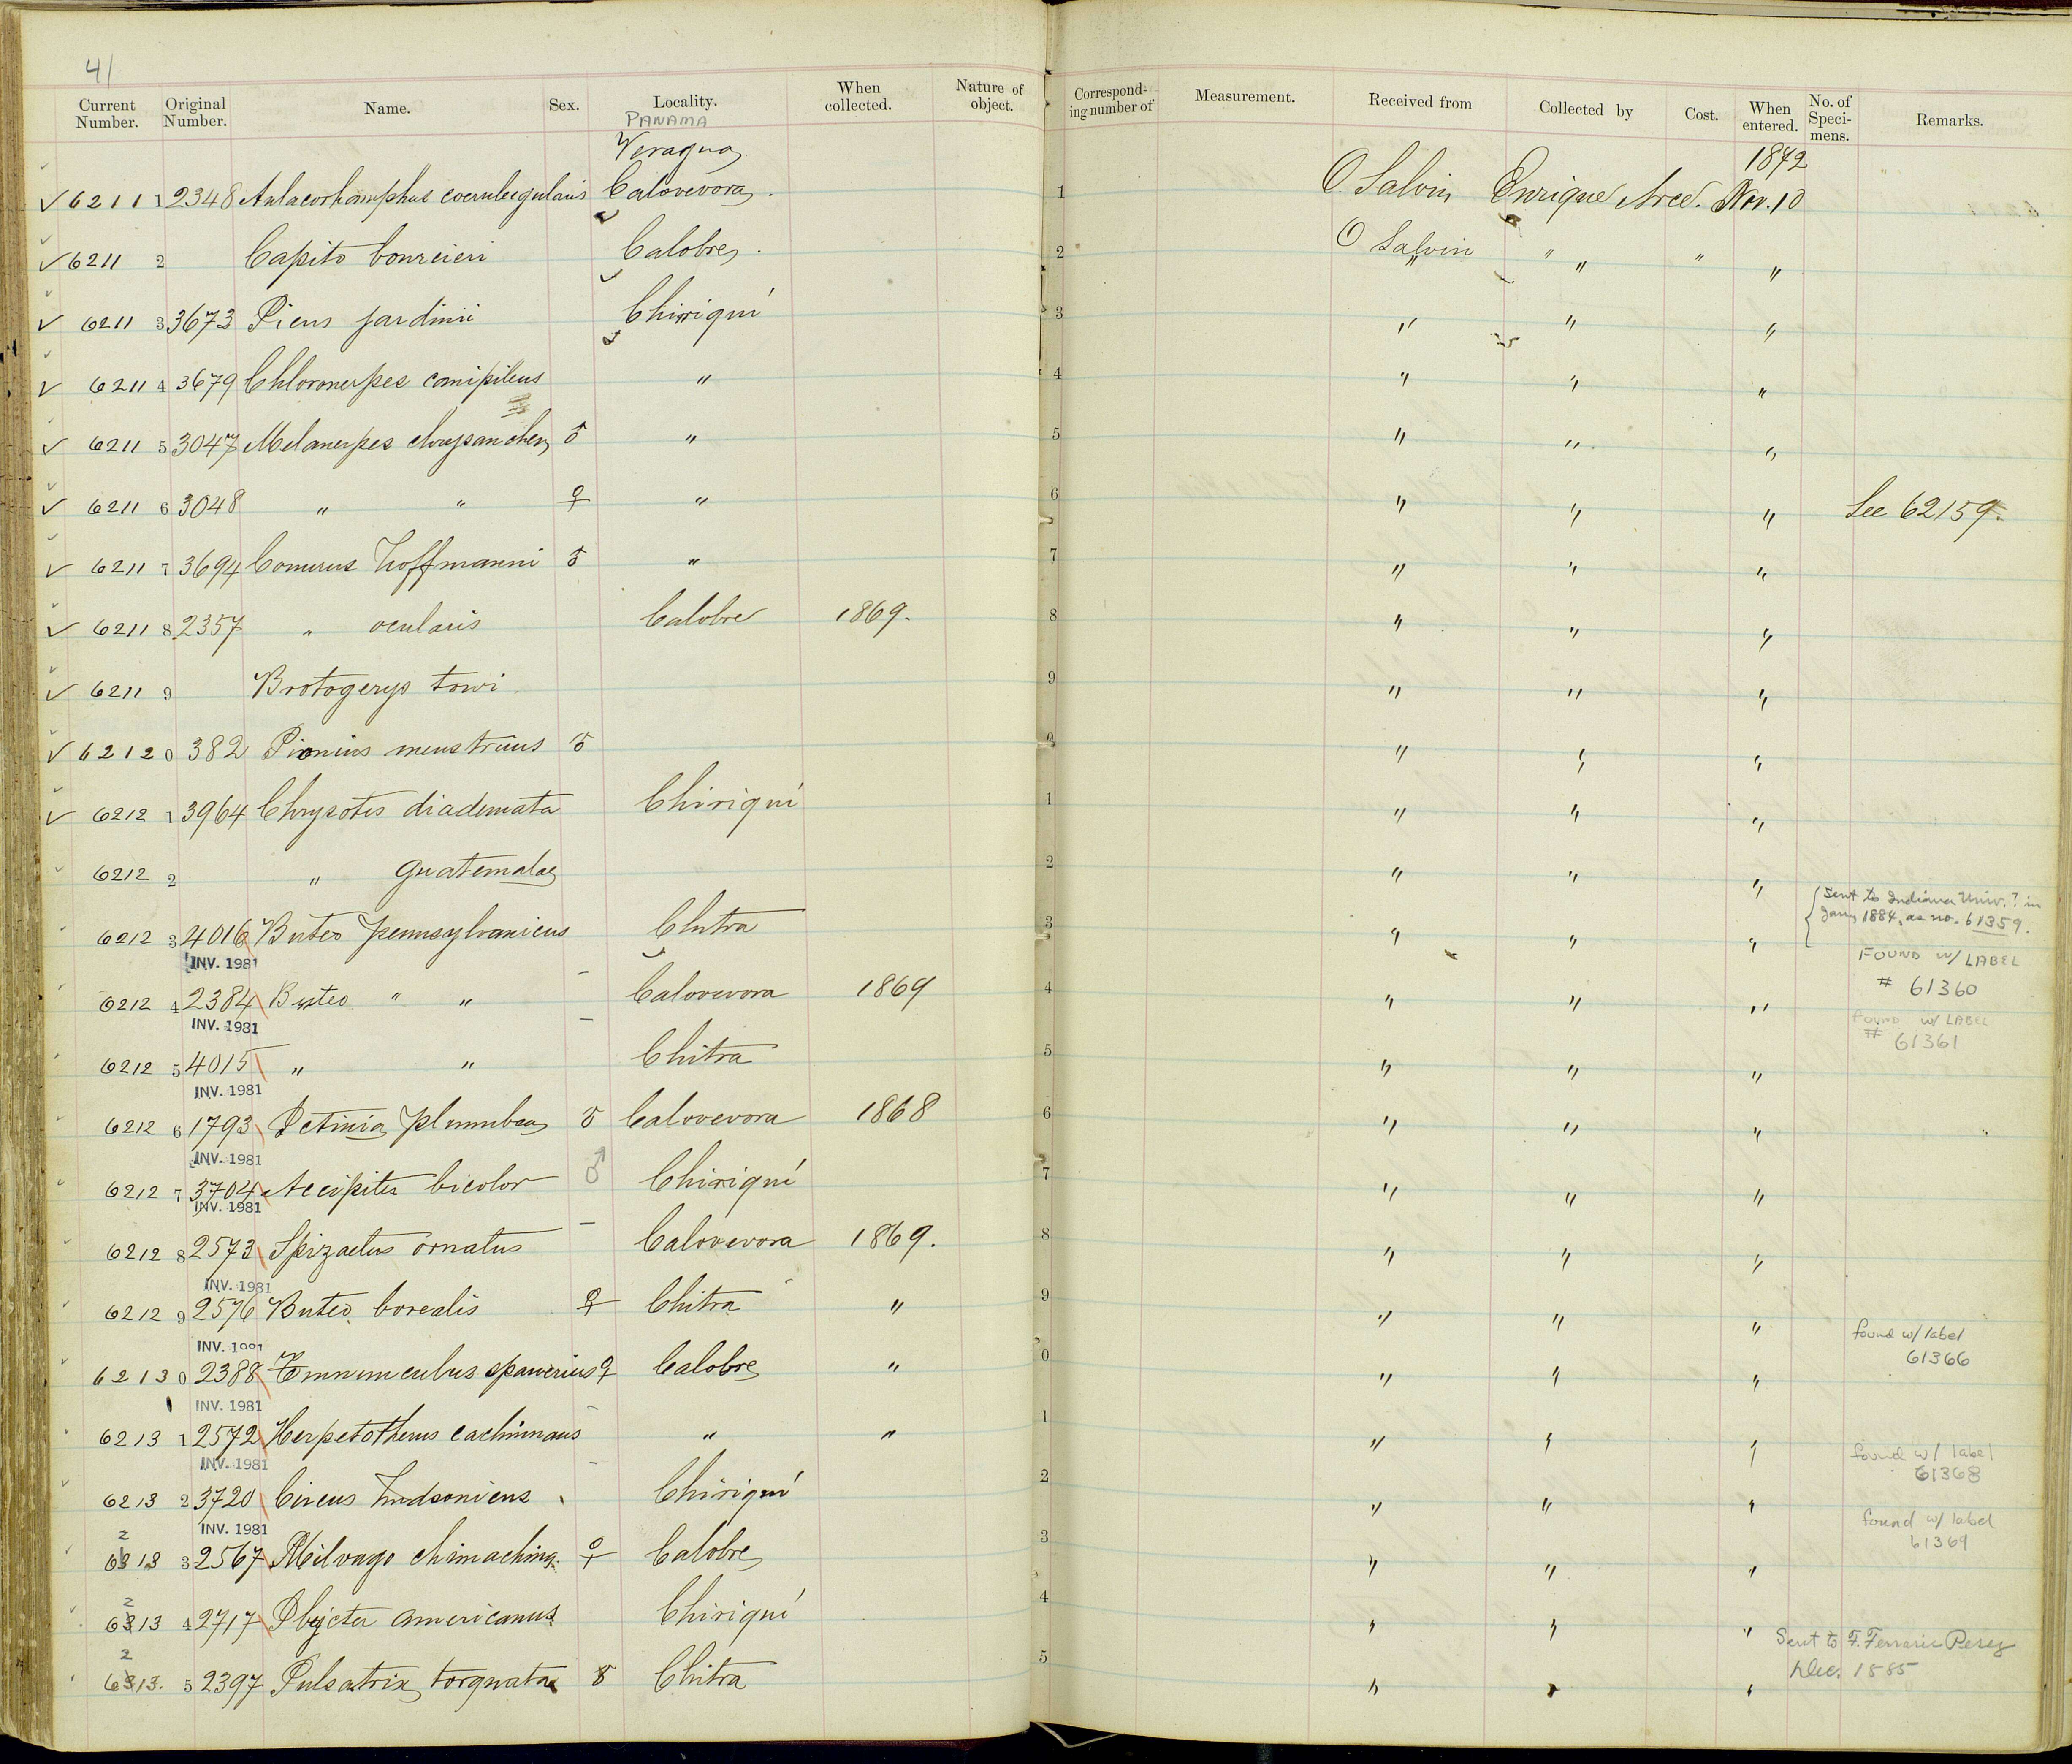 41
Current Number. Original Number. Name. Sex. Locality. When collected. Nature of object. Correspond- ing number of Measurement. Received from Collected by Cost. When entered. No. of Speci- mens. Remarks.
PANAMA
Veragua 1872
✓ 6211 1 2348 Aulacorhamphus coeruleigularis Calovevora. 1 O. Salvin Enrique Arce. Nov. 10
✓ 6211 2 Capito bourcieri Calobre. 2 O Salvin " " " "
✓ 6211 3 3673 Picus jardinii Chiriquí 3 " " "
✓ 6211 4 3679 Chloronerpes canipileus " 4 " " "
✓ 6211 5 3047 Melanerpes chrysauchen ♂ " 5 " " "
✓ 6211 6 3048 " " ♀ " 6 " " " See 62159.
✓ 6211 7 3694 Conurus hoffmanni ♂ " 7 " " "
✓ 6211 8 2357 " ocularis Calobre 1869. 8 " " "
✓ 6211 9 Brotogerys tovi 9 " " "
✓ 6212 0 382 Pionius menstruus ♂ 0 " " "
✓ 6212 1 3964 Chrysotis diademata Chiriquí 1 " " "
6212 2 " guatemalae 2 " " "
6212 3 4016 Buteo pennsylvanicus Chitra 3 " " " { Sent to Indiana Univ.? in
Jany 1884, as no. 61359.
INV. 1981 FOUND W/ LABEL
# 61360
6212 4 2384 Buteo " " – Calovevora 1869 4 " " "
INV. 1981 – found w/ LABEL
# 61361
6212 5 4015 " " Chitra 5 " " "
INV. 1981
6212 6 1793 Ictinia plumbea ♂ Calovevora 1868 6 " " "
INV. 1981
6212 7 3704 Accipiter bicolor ♂ Chiriquí 7 " " "
INV. 1981
6212 8 2573 Spizaetus ornatus – Calovevora 1869. 8 " " "
INV. 1981
6212 9 2576 Buteo borealis ♀ Chitra " 9 " " "
INV. 1981 found w/ label
61366
6213 0 2388 Tinnunculus sparverius ♀ Calobre " 0 " " "
INV. 1981
6213 1 2572 Herpetotheres cachinnans – " " 1 " " "
INV. 1981 found w/ label
61368
6213 2 3720 Circus hudsonicus – Chiriquí 2 " " "
INV. 1981 found w/ label
61369
2
6313 3 2567 Milvago chimachima. ♀ Calobre 3 " " "
2
6313 4 2717 Ibycter americanus. Chiriquí 4 " " "
Sent to F. Ferrari Perez
Dec. 1885
2
6313. 5 2397 Pulsatrix torquata ♂ Chitra 5 " " "